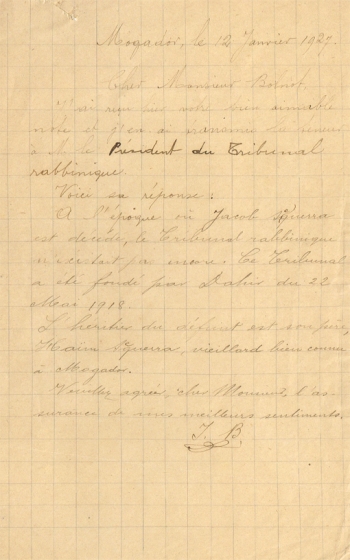 Mogador, le 12 Janvier 1927.
Cher Monsieur
J'ai reçu hier votre bien aimable
note et j'en ai transmis la teneur
à M. le Président du Tribunal
rabbinique.
Voici sa réponse :
A l'époque où Jacob
est décédé, le Tribunal rabbinique
n'existait pas encore. Ce Tribunal
a été fondé par Dahir du 22
Mai 1918.
L'héritier du défunt est son père,
Haïm vieillard bien connu
à Mogador.
Veuillez agréer, cher Monsieur, l'as-
surance de mes meilleurs sentiments.
J. B.